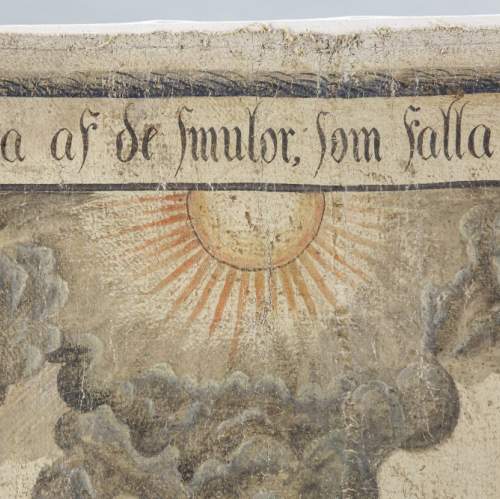 a af de ſmulor, ſom falla